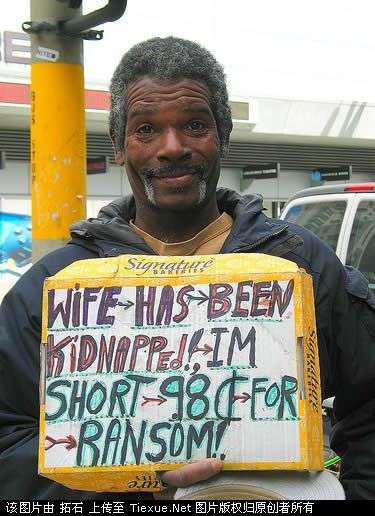 Signature
BAKERIES
WIFE → HAS → BEEN
KIDNAPPED!! → IM
SHORT → 98¢ → FOR
→ RANSOM!!
Signature
该图片由 拓石 上传至 Tiexue.Net 图片版权归原创者所有